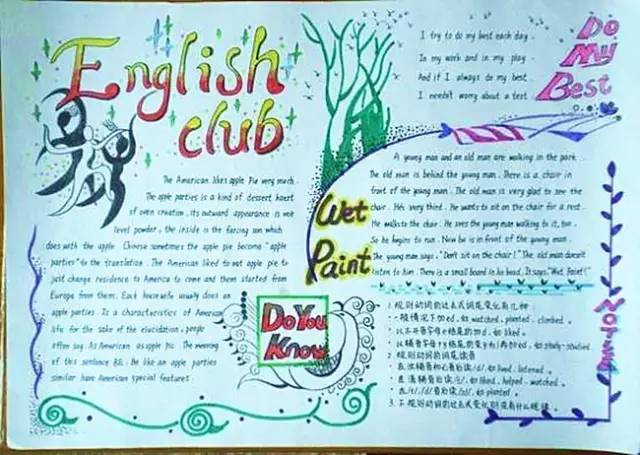 English
club
The American likes apple Pie very much.
The apple parties is a kind of dessert haert
of oven creation, its outward appearance is wet
level powder, the inside is the farcing sun which
does with the apple. Chinese sometimes the apple pie become "apple
parties" to the translation. The American liked to eat apple pie to
just change residence to America to come and them started from
Europe from them. Each housewife usually does an
apple parties. Is a characteristics of American
life for the sake of the elucidation, people
often say: As American as apple pie. The meaning
of this sentence BE: Be like an apple parties
similar have American special features.
Do You
Know
Do
My
Best
I try to do my best each day.
In my work and in my play.
And if I always do my best.
I needn't worry about a test.
Wet
Paint
A young man and an old man are walking in the park.
The old man is behind the young man. There is a chair in
front of the young man. The old man is very glad to see the
chair. He's very tired. He wants to sit on the chair for a rest.
He walks to the chair. He sees the young man walking to it, too.
So he begins to run. Now he is in front of the young man.
The young man says. "Don't sit on the chair!" The old man doesn't
listen to him. There is a small board in his head. It says "Wet Paint!"
1. 规则动词的过去式词尾变化有几种:
一般情况下加ed. 如 watched. planted. climbed.
以不发音字母e结尾的加d. 如 liked.
以辅音字母+y结尾的变y为i再加ed. 如 study-studied
2. 规则动词的词尾读音
在浊辅音和元音后读/d/. 如 lived. listened.
在清辅音后读/t/. 如 liked. helped. watched.
在/t/./d/音后读/id/. 如 planted.
3. 不规则动词的过去式变化则没有什么规律.